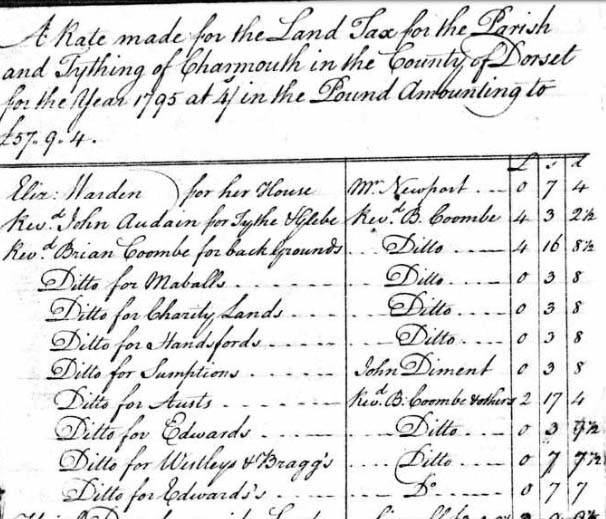 A Rate made for the Land Tax for the Parish
and Tything of Charmouth in the County of Dorset
for the Year 1795 at 4/ in the Pound Amounting to
£57.9.4.
£ s d
Eliz: Warden for her House Mr. Newport 0 7 4
Revd. John Audain for Tythe & Glebe Revd. B. Coombe 4 3 2½
Revd. Brian Coombe for backgrounds Ditto 4 16 8½
Ditto for Maballs Ditto 0 3 8
Ditto for Charity Lands Ditto 0 3 8
Ditto for Handsfords Ditto 0 3 8
Ditto for Sumptions John Diment 0 3 8
Ditto for Austs Revd. B. Coombe & others 2 17 4
Ditto for Edwards Ditto 0 3 9½
Ditto for Westleys & Bragg's Ditto 0 7 7½
Ditto for Edwards's Do 0 7 7